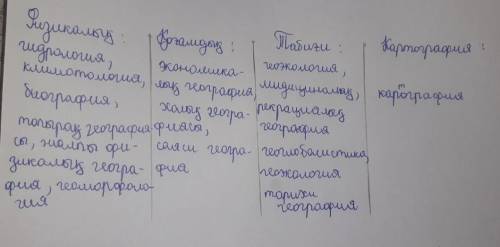 Физикалық:
гидрология,
климотология,
биография,
топырақ география
сы, жалпы фи-
зикалық геогра-
фия, геоморфоло-
гия
Қоғамдық:
экономика-
лық география,
халық геогра-
фиясы,
саяси геогра-
фиа
Табиғи:
геоэкология,
медициналық,
рекрациалық
география
геоглобалистика,
геоэкология
тарихи
география
Картография:
картография